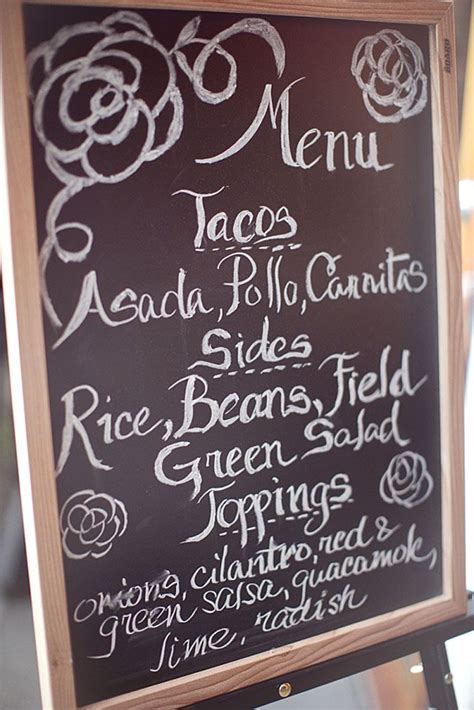 BOARD
Menu
Tacos
Asada, Pollo, Carnitas
Sides
Rice, Beans, Field
Green Salad
Toppings
onions, cilantro, red &
green salsa, guacamole,
lime, radish